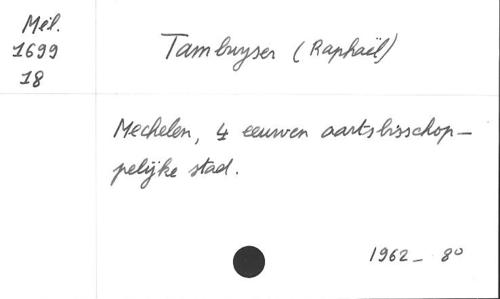 Mél.
1699
18
Tambuyser (Raphaël)
Mechelen, 4 eeuwen aartsbisschop-
pelijke stad.
1962_ 8°